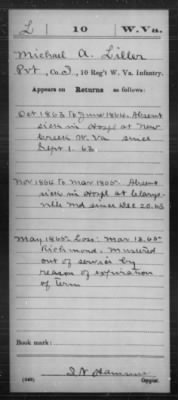 L | 10 | W.Va.
Michael A. Liller
Pvt, Co. I, 10 Reg't W. Va. Infantry.
Appears on Returns as follows:
Oct 1863 to June 1864. Absent
sick in Hospl at New
Creek W. Va since
Sept 1. 63
Nov 1864 to Mar 1865. Absent
sick in Hospl at Clarys-
ville Md since Dec 20.63
May 1865. Loss: Mar 12.65
Richmond. Mustered
out of service by
reason of expiration
of term
Book mark:
(546)
Copyist.